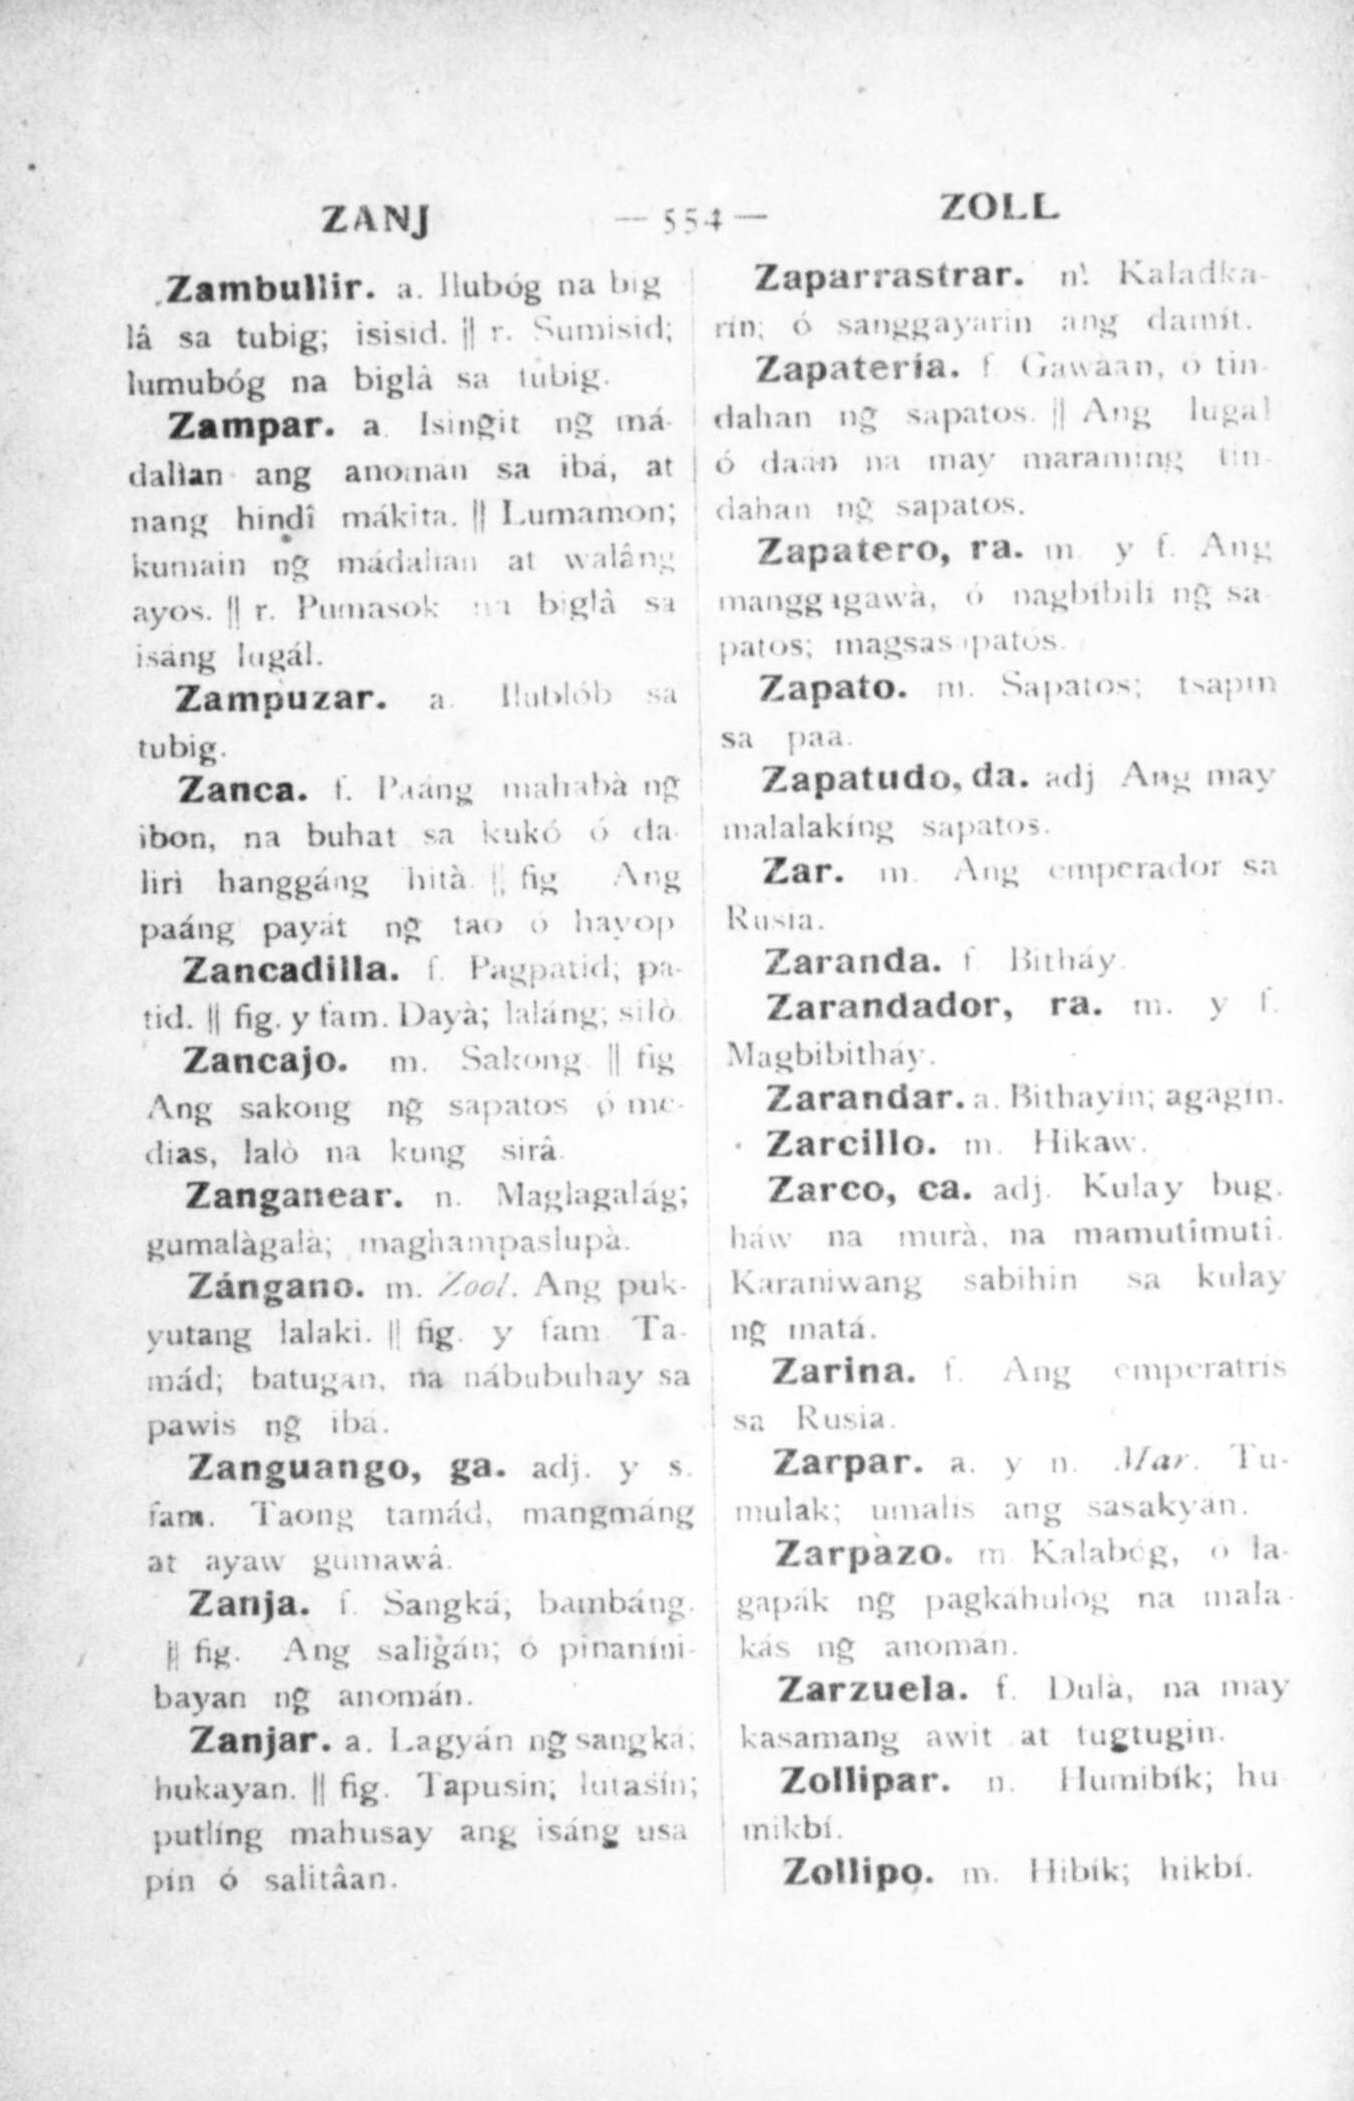 ZANJ — 554 — ZOLL
Zambullir. a. Ilubóg na big
lâ sa tubig; isisid. || r. Sumisid;
lumubóg na biglâ sa tubig.
Zampar. a. Isingit ng̃ má-
dalian ang anomán sa ibá, at
nang hindî mákita. || Lumamon;
kumain ng̃ mádalian at walâng
ayos. || r. Pumasok na biglâ sa
isáng lugál.
Zampuzar. a. Ilublób sa
tubig.
Zanca. f. Paáng mahabà ng̃
ibon, na buhat sa kukó ó da-
liri hanggáng hità. || fig Ang
paáng payát ng̃ tao ó hayop
Zancadilla. f. Pagpatid; pa-
tid. || fig. y fam. Dayà; laláng; silò
Zancajo. m. Sakong || fig
Ang sakong ng̃ sapatos ó me-
dias, lalò na kung sirâ.
Zanganear. n. Maglagalág;
gumalàgalà; maghampaslupà.
Zángano. m. Zool. Ang puk-
yutang lalaki. || fig. y fam Ta-
mád; batugan, na nábubuhay sa
pawis ng̃ ibá.
Zanguango, ga. adj. y s.
fam. Taong tamád, mangmáng
at ayaw gumawâ.
Zanja. f. Sangká; bambáng.
|| fig. Ang saligán; ó pinaníni-
bayan ng̃ anomán.
Zanjar. a. Lagyán ng̃ sangká;
hukayan. || fig. Tapusin; lutasín;
putlíng mahusay ang isáng usa
pín ó salitâan.
Zaparrastrar. n. Kaladka-
rín; ó sanggayarin ang damít.
Zapatería. f. Gawàan, ó tin-
dahan ng̃ sapatos. || Ang lugal
ó daán na may maraming tin-
dahan ng̃ sapatos.
Zapatero, ra. m. y f. Ang
manggagawà, ó nagbíbili ng̃ sa-
patos; magsasapatós.
Zapato. m. Sapatos; tsapín
sa paa.
Zapatudo, da. adj Ang may
malalakíng sapatos.
Zar. m. Ang emperador sa
Rusia.
Zaranda. f. Bitháy.
Zarandador, ra. m. y f.
Magbibitháy.
Zarandar. a. Bithayín; agagín.
Zarcillo. m. Hikaw.
Zarco, ca. adj. Kulay bug.
háw na murà, na mamutîmuti.
Karaniwang sabihin sa kulay
ng̃ matá.
Zarina. f. Ang emperatrís
sa Rusia.
Zarpar. a. y n. Mar. Tu-
mulak; umalis ang sasakyán.
Zarpazo. m Kalabóg, ó la-
gapák ng̃ pagkáhulog na mala-
kás ng̃ anomán.
Zarzuela. f. Dulà, na may
kasamang awit at tugtugin.
Zollipar. n. Humibík; hu
mikbí.
Zollipo. m. Hibík; hikbí.